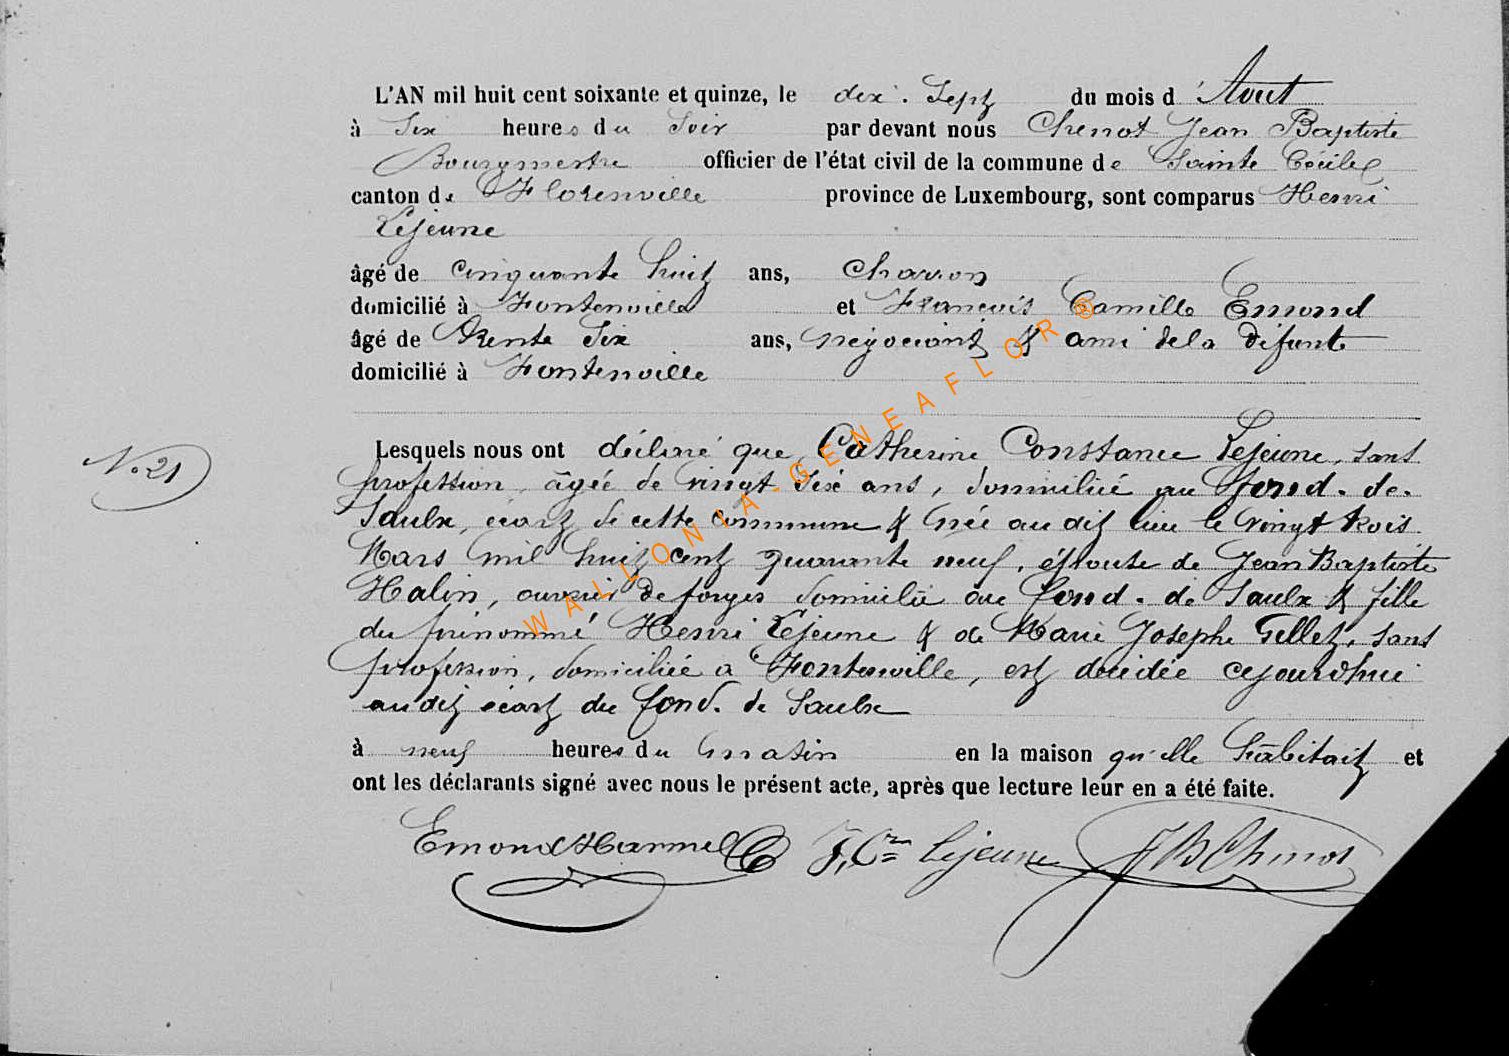 L'AN mil huit cent soixante et quinze, le dix-Sept du mois d'Aout
à Six heures du Soir par devant nous Chenot Jean Baptiste
Bourgmestre officier de l'état civil de la commune de Sainte Cécile
canton de Florenville province de Luxembourg, sont comparus Henri
Lejeune
âgé de cinquante huit ans, Charron
domicilié à Fontenoille et François Camille Emond
âgé de Trente Six ans, négociant & ami de la défunte
domicilié à Fontenoille
N° 21
Lesquels nous ont déclaré que Catherine Constance Lejeune, sans
profession, âgée de vingt Six ans, domiciliée au fond-de-
Saulx, écart de cette commune & née au dit lieu le vingt trois
Mars mil huit cent quarante neuf, épouse de Jean Baptiste
Halin, ouvrier de forges domicilié au fond-de Saulx & fille
du prénommé Henri Lejeune & de Marie Josephe Gillet, sans
profession, domiciliée à Fontenoille, est décédée cejourdhui
au dit écart du fond-de Saulx
à neuf heures du matin en la maison qu'elle habitait et
ont les déclarants signé avec nous le présent acte, après que lecture leur en a été faite.
Emond Harmel Lejeune JB Chenot
WALLONIA-GENEAFLOR©